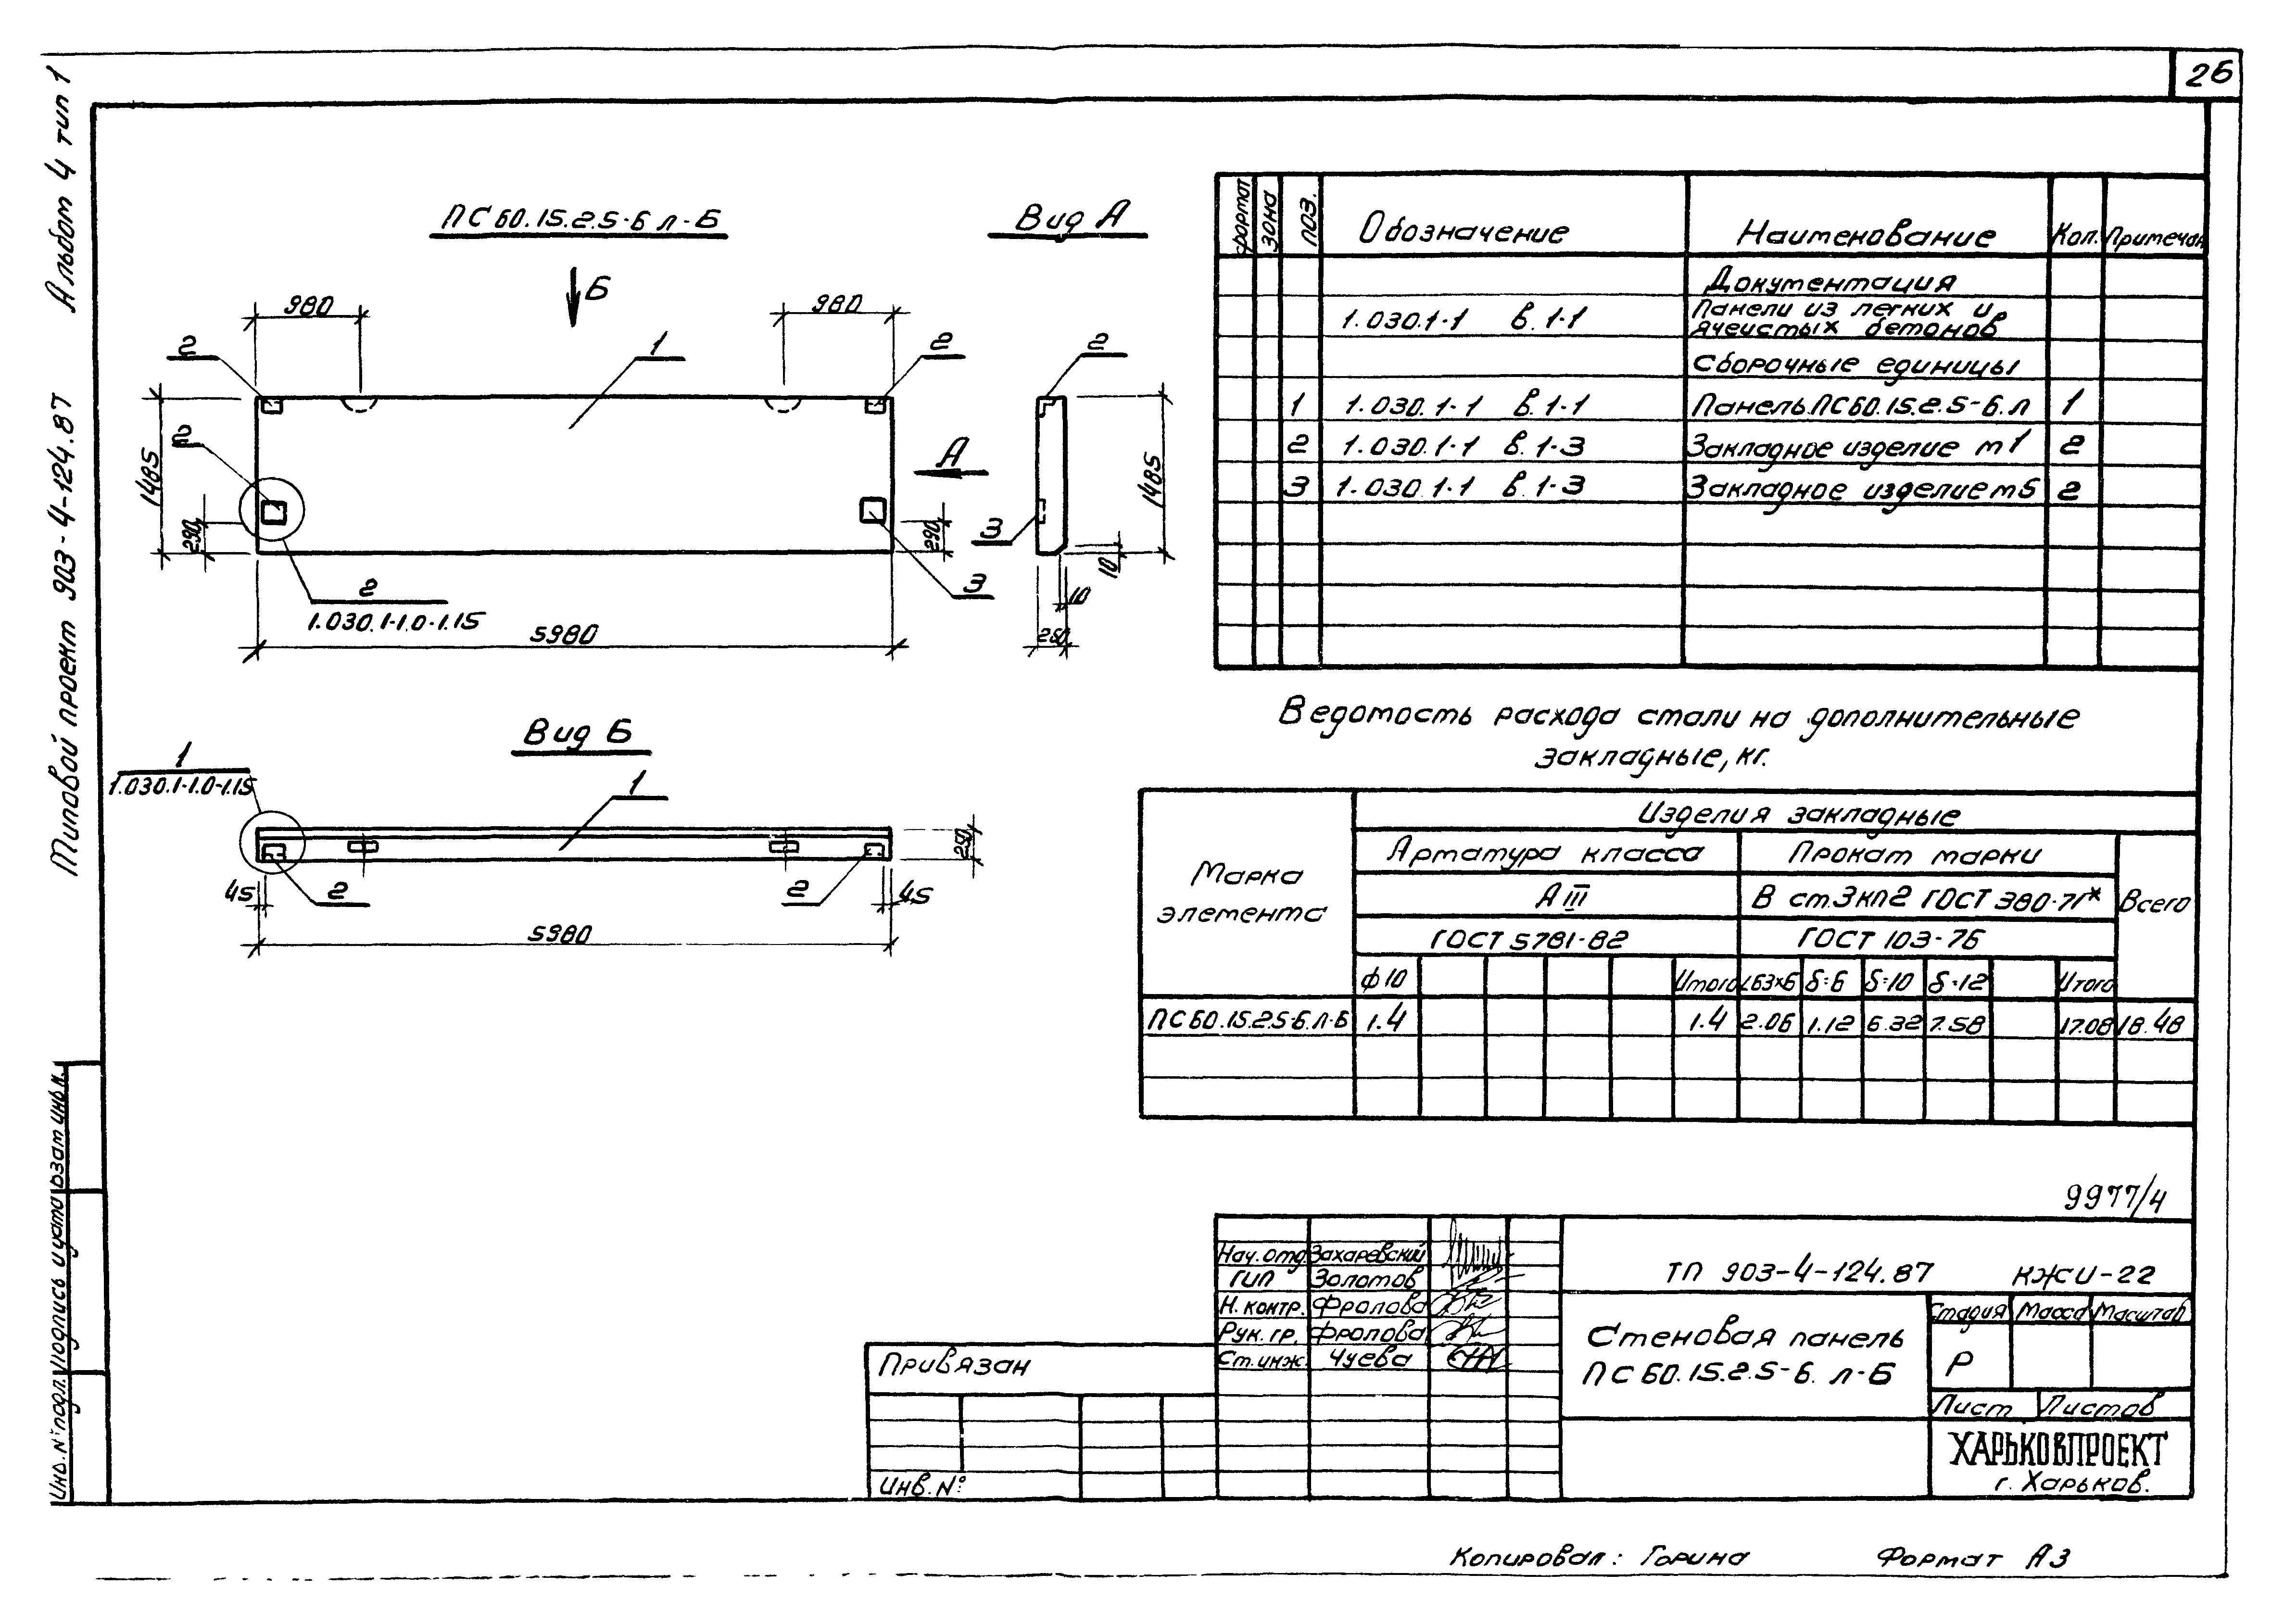 26
Альбом 4 тип 1
Типовой проект 903-4-124.87
ПС60.15.2.5-6 л-Б
Вид А
Б
980
980
2
1
2
2
2
1485
290
А
290
3
2
1.030.1-1.0-1.15
5980
3
1485
10
10
250
Вид Б
1
1.030.1-1.0-1.15
1
250
45
2
2
45
5980
формат зона поз. Обозначение Наименование Кол. Примечан
Документация
1.030.1-1 в.1-1 Панели из легких и
ячеистых бетонов
Сборочные единицы
1 1.030.1-1 в.1-1 Панель ПС60.15.2.5-6.л 1
2 1.030.1-1 в.1-3 Закладное изделие м1 2
3 1.030.1-1 в.1-3 Закладное изделие м5 2
Ведомость расхода стали на дополнительные
закладные, кг.
Марка
элемента
Изделия закладные
Арматура класса Прокат марки
А III В ст.3кп2 ГОСТ 380-71* Всего
ГОСТ 5781-82 ГОСТ 103-76
ф10 Итого L63×6 δ=6 δ=10 δ=12 Итого
ПС60.15.2.5-6.Л-Б 1.4 1.4 2.06 1.12 6.32 7.58 17.08 18.48
9977/4
Нач.отд. Захаревский
ГИП Золотов
Н. контр. Фролова
Рук. гр. Фролова
Ст.инж. Чуева
ТП 903-4-124.87 КЖИ-22
Стеновая панель
ПС60.15.2.5-6. л-Б
Стадия Масса Масштаб
Р
Лист Листов
ХАРЬКОВПРОЕКТ
г. Харьков.
Привязан
Инв.№
Инв.№подл. Подпись и дата Взам инв.н.
Копировал: Горина Формат А3